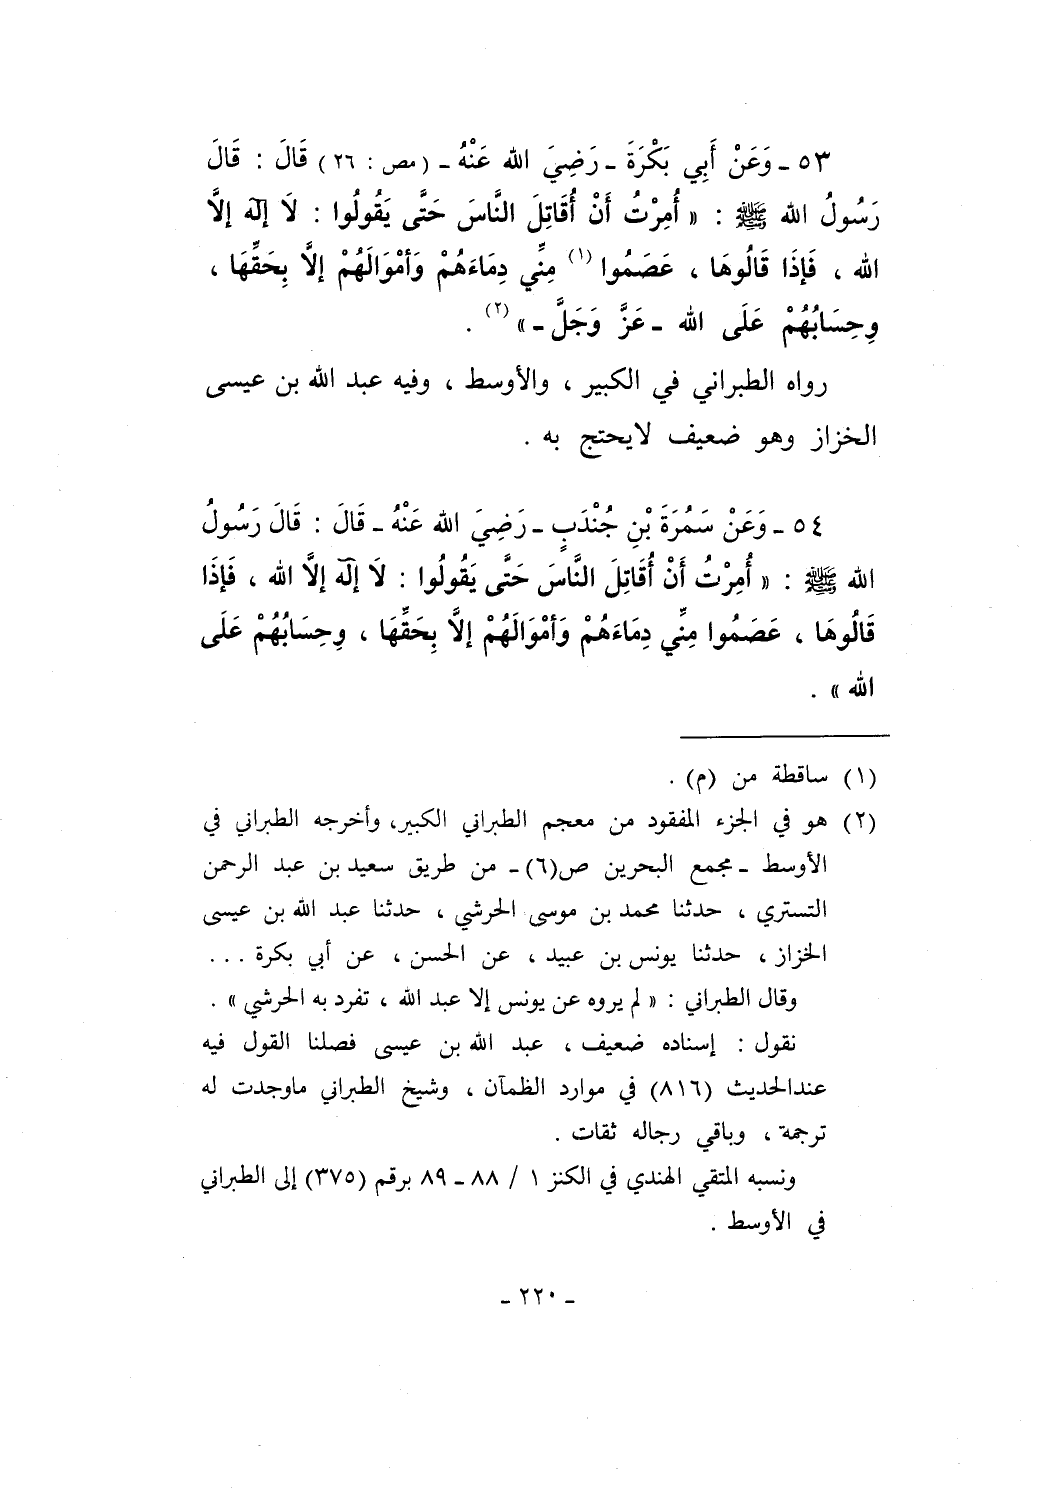 ٥٣ ـ وَعَنْ أَبِي بَكْرَةَ ـ رَضِيَ الله عَنْهُ ـ ( مص : ٢٦ ) قَالَ : قَالَ
رَسُولُ الله ﷺ : « أُمِرْتُ أَنْ أُقَاتِلَ النَّاسَ حَتَّى يَقُولُوا : لَا إلَه إلاَّ
الله ، فَإذَا قَالُوهَا ، عَصَمُوا (١) مِنِّي دِمَاءَهُمْ وَأَمْوَالَهُمْ إلاَّ بِحَقِّهَا ،
وِحِسَابُهُمْ عَلَى الله ـ عَزَّ وَجَلَّ ـ » (٢) .
رواه الطبراني في الكبير ، والأوسط ، وفيه عبد الله بن عيسى
الخزاز وهو ضعيف لايحتج به .
٥٤ ـ وَعَنْ سَمُرَةَ بْنِ جُنْدَبٍ ـ رَضِيَ الله عَنْهُ ـ قَالَ : قَالَ رَسُولُ
الله ﷺ : « أُمِرْتُ أَنْ أُقَاتِلَ النَّاسَ حَتَّى يَقُولُوا : لَا إلَه إلاَّ الله ، فَإذَا
قَالُوهَا ، عَصَمُوا مِنِّي دِمَاءَهُمْ وَأَمْوَالَهُمْ إلاَّ بِحَقِّهَا ، وِحِسَابُهُمْ عَلَى
الله » .
(١) ساقطة من (م) .
(٢) هو في الجزء المفقود من معجم الطبراني الكبير، وأخرجه الطبراني في
الأوسط ـ مجمع البحرين ص(٦) ـ من طريق سعيد بن عبد الرحمن
التستري ، حدثنا محمد بن موسى الحرشي ، حدثنا عبد الله بن عيسى
الخزاز ، حدثنا يونس بن عبيد ، عن الحسن ، عن أبي بكرة ...
وقال الطبراني : « لم يروه عن يونس إلا عبد الله ، تفرد به الحرشي » .
نقول : إسناده ضعيف ، عبد الله بن عيسى فصلنا القول فيه
عندالحديث (٨١٦) في موارد الظمآن ، وشيخ الطبراني ماوجدت له
ترجمة ، وباقي رجاله ثقات .
ونسبه المتقي الهندي في الكنز ١ / ٨٨ ـ ٨٩ برقم (٣٧٥) إلى الطبراني
في الأوسط .
ـ ٢٢٠ ـ